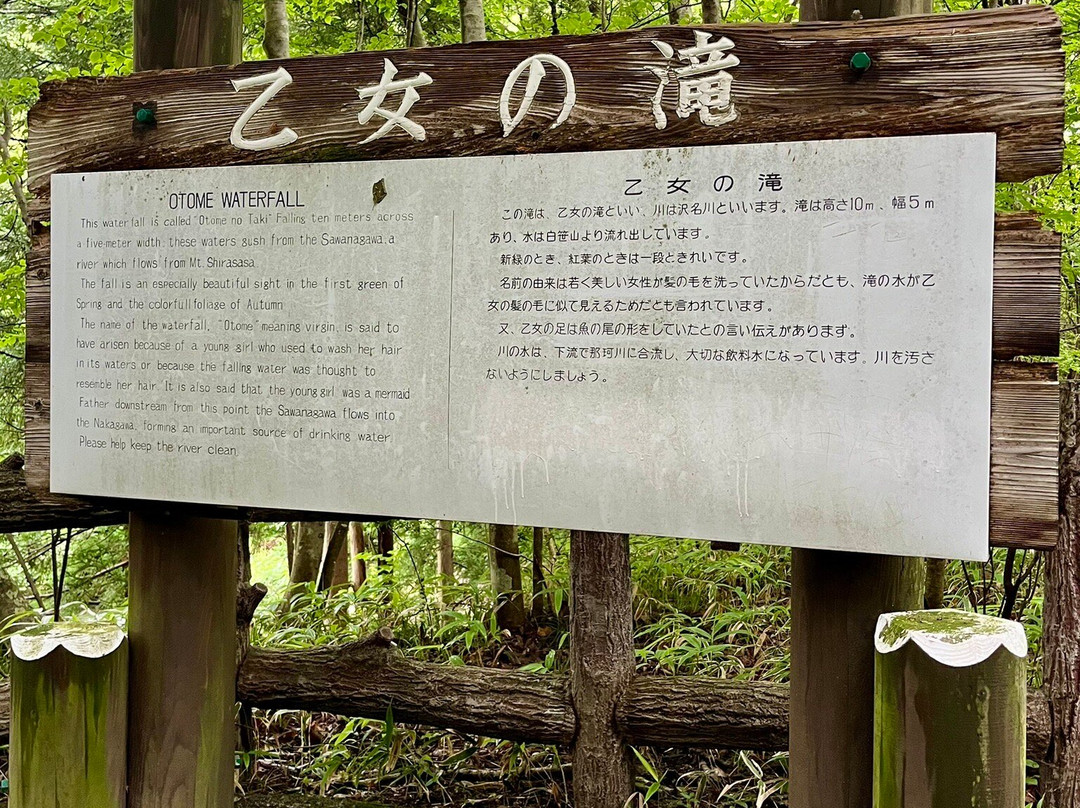 乙女の滝
OTOME WATERFALL
This waterfall is called "Otome no Taki" Falling ten meters across
a five-meter width, these waters gush from the Sawanagawa, a
river which flows from Mt. Shirasasa
The fall is an especially beautiful sight in the first green of
Spring and the colorfull foliage of Autumn
The name of the waterfall, "Otome" meaning virgin, is said to
have arisen because of a young girl who used to wash her hair
in its waters or because the falling water was thought to
resemble her hair. It is also said that the young girl was a mermaid
Father downstream from this point the Sawanagawa flows into
the Nakagawa, forming an important source of drinking water.
Please help keep the river clean.
乙女の滝
この滝は、乙女の滝といい、川は沢名川といいます。滝は高さ10m、幅5m
あり、水は白笹山より流れ出しています。
新緑のとき、紅葉のときは一段ときれいです。
名前の由来は若く美しい女性が髪の毛を洗っていたからだとも、滝の水が乙
女の髪の毛に似て見えるためだとも言われています。
又、乙女の足は魚の尾の形をしていたとの言い伝えがあります。
川の水は、下流で那珂川に合流し、大切な飲料水になっています。川を汚さ
ないようにしましょう。